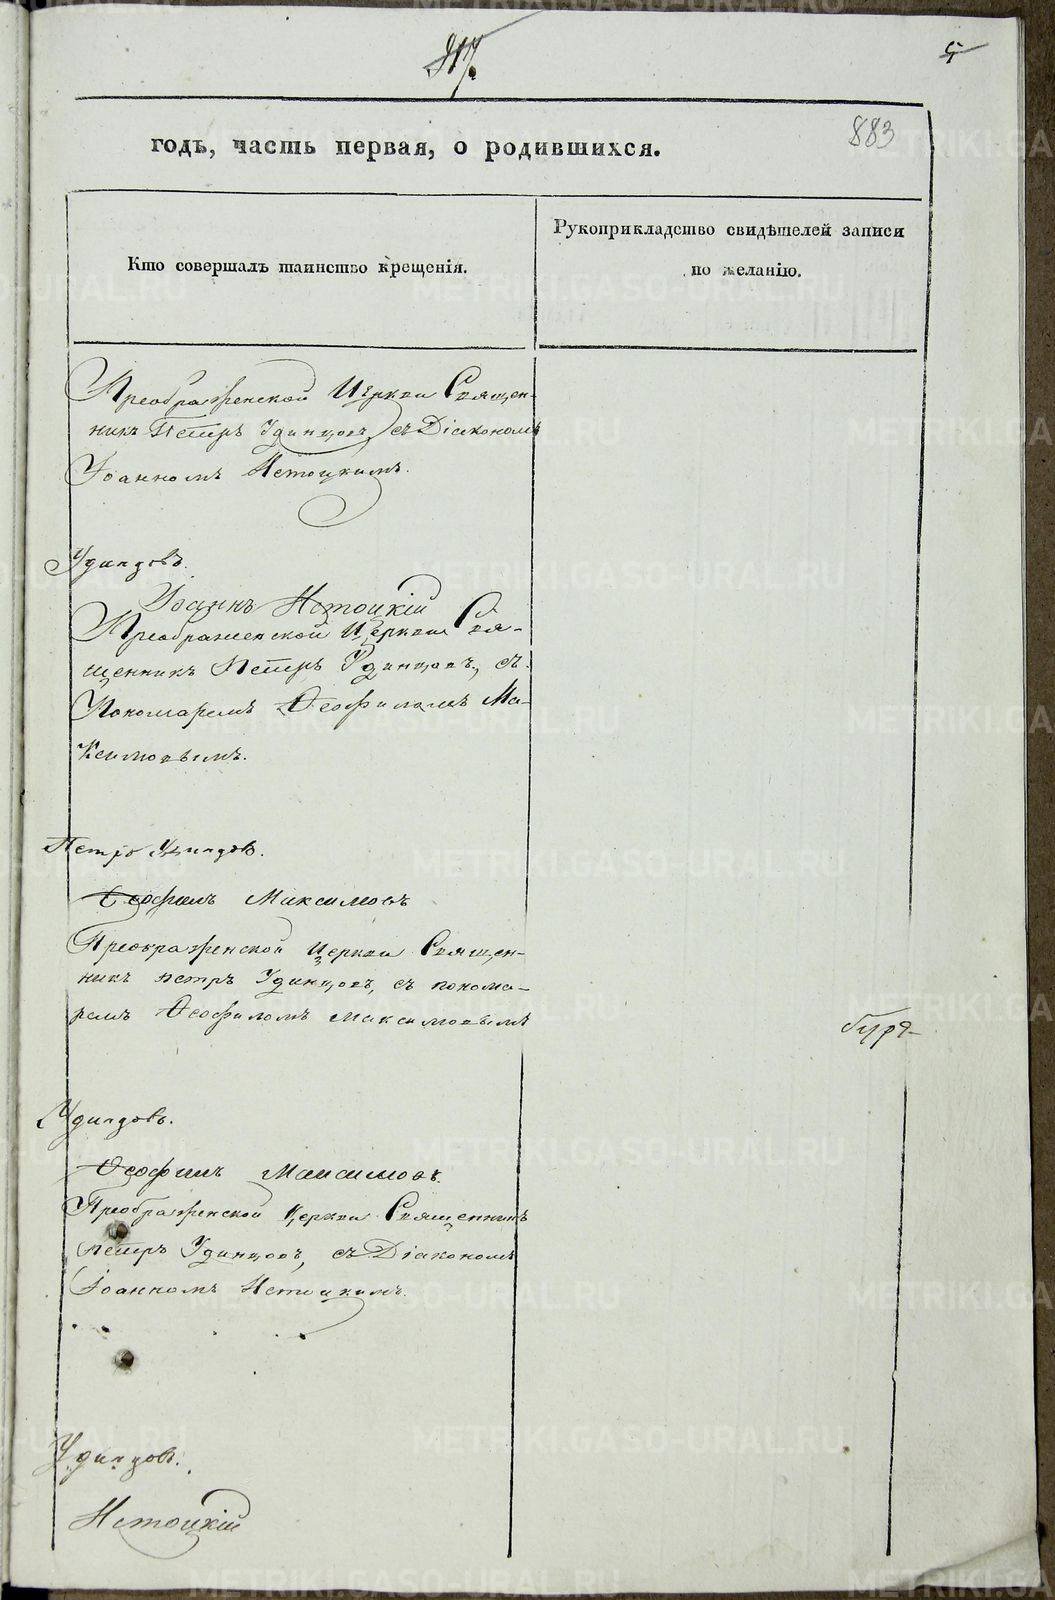 817.
5
883
годъ, часть первая, о родившихся.
Кто совершалъ таинство крещенія.
Рукоприкладство свидѣтелей записи
по желанію.
Преображенской Церкви Священ-
никъ Петръ Удинцовъ, съ Діакономъ
Іоанномъ Истоцкимъ.
Удинцовъ.
Іоаннъ Истоцкій
Преображенской Церкви Свя-
щенникъ Петръ Удинцовъ, съ
Пономаремъ Ѳеофиломъ Ма-
ксимовымъ.
Петръ Удинцовъ.
Ѳеофилъ Максимовъ
Преображенской Церкви Священ-
никъ Петръ Удинцовъ, съ понома-
ремъ Ѳеофиломъ Максимовымъ
Удинцовъ.
Ѳеофилъ Максимовъ.
Преображенской Церкви Священникъ
Петръ Удинцовъ, съ Діакономъ
Іоанномъ Истоцкимъ.
Удинцовъ.
Истоцкій
METRIKI.GASO-URAL.RU